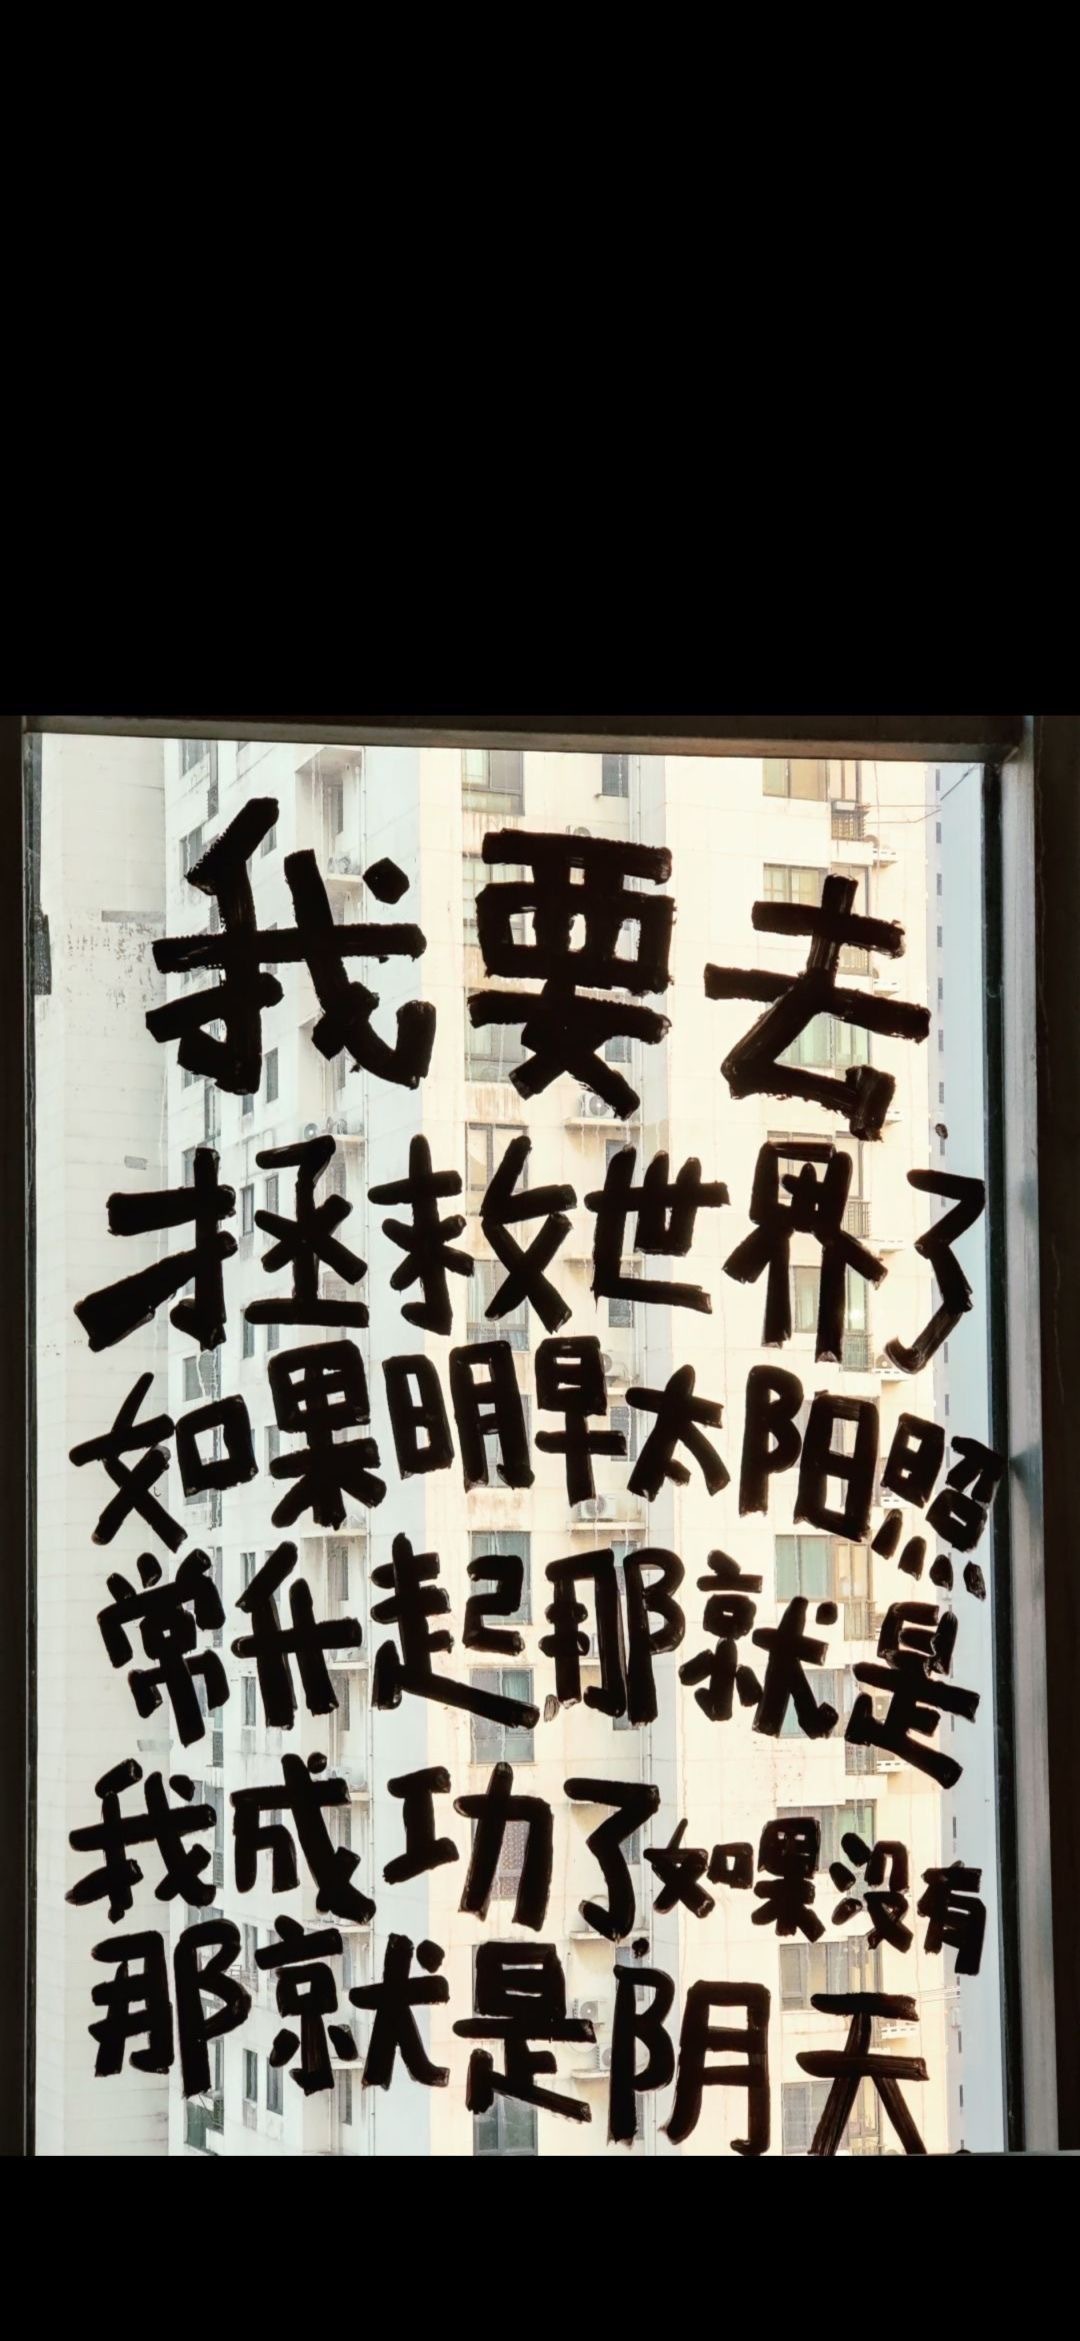 我要去
拯救世界了
如果明早太阳照
常升起那就是
我成功了如果没有
那就是阴天